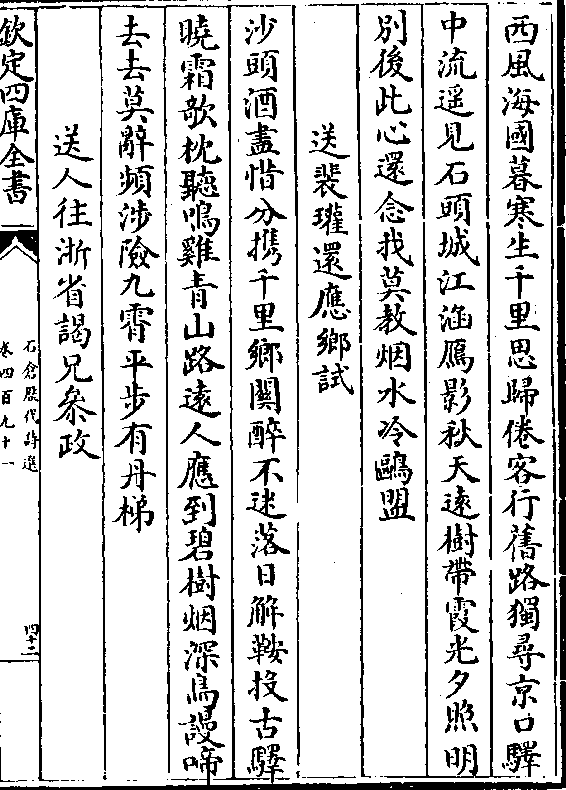 西風海國暮寒生千里思歸倦客行舊路獨尋京口驛
中流遥見石頭城江涵鴈影秋天遠樹帶霞光夕照明
別後此心還念我莫教烟水冷鷗盟
送裴瓘還應鄉試
沙頭酒盡惜分携千里鄉關醉不迷落日解鞍投古驛
曉霜欹枕聽鳴雞青山路遠人應到碧樹烟深鳥謾啼
去去莫辭頻涉險九霄平步有丹梯
送人往浙省謁兄叅政
欽定四庫全書
石倉歷代詩選
卷四百九十一
四十二